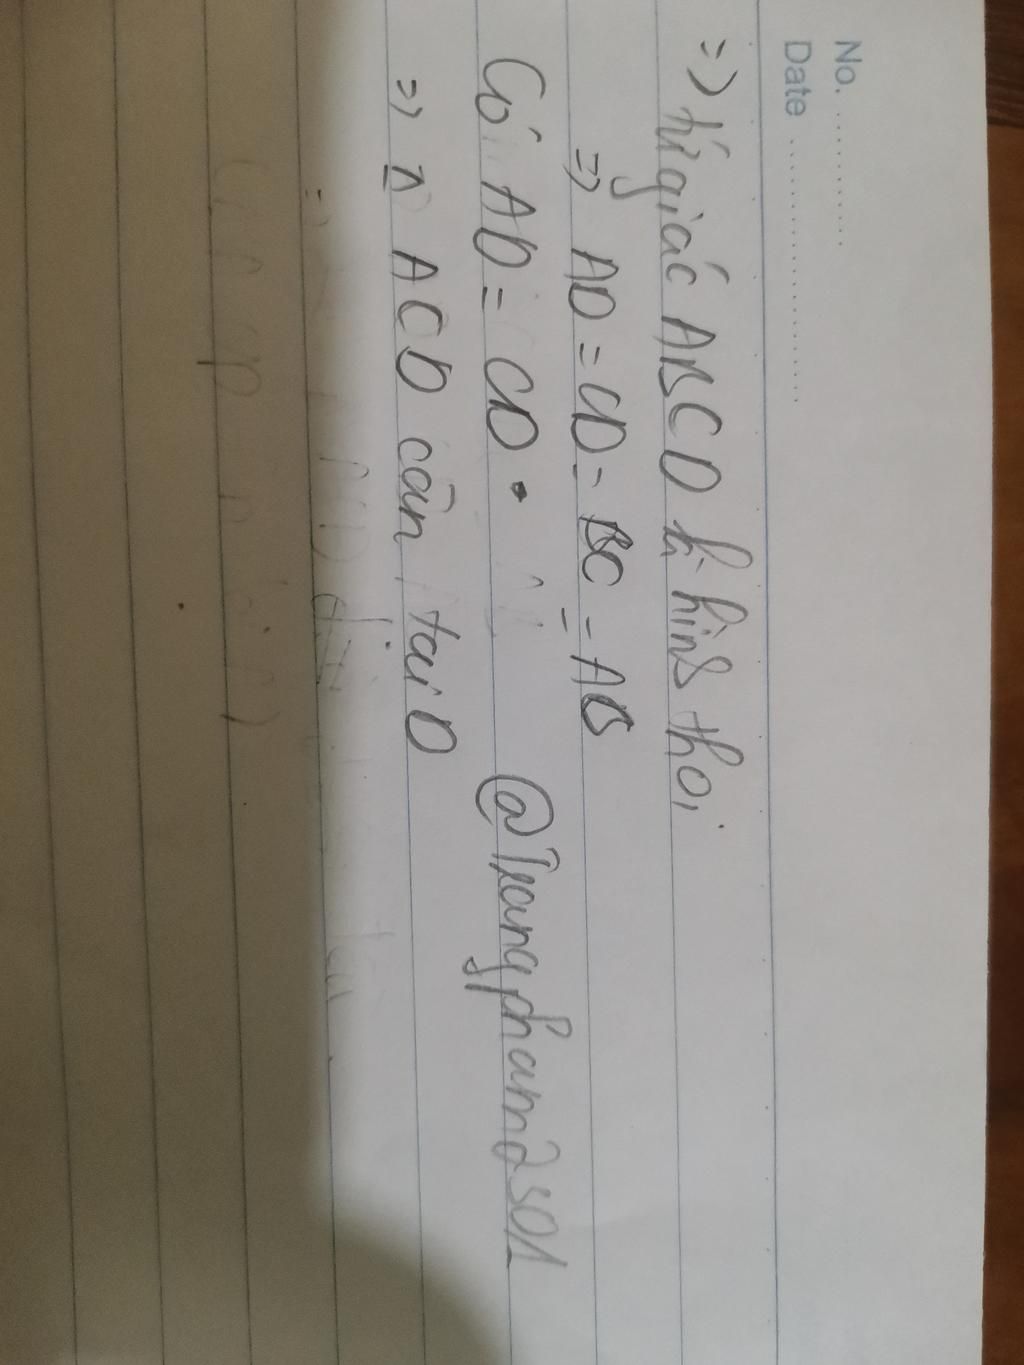 No. ............
Date ........................
=> tứ giác ABCD là hình thoi
=> AD = CD = BC = AB
Có AD = CD
=> Δ ACD cân tại D
@Trangpham2501